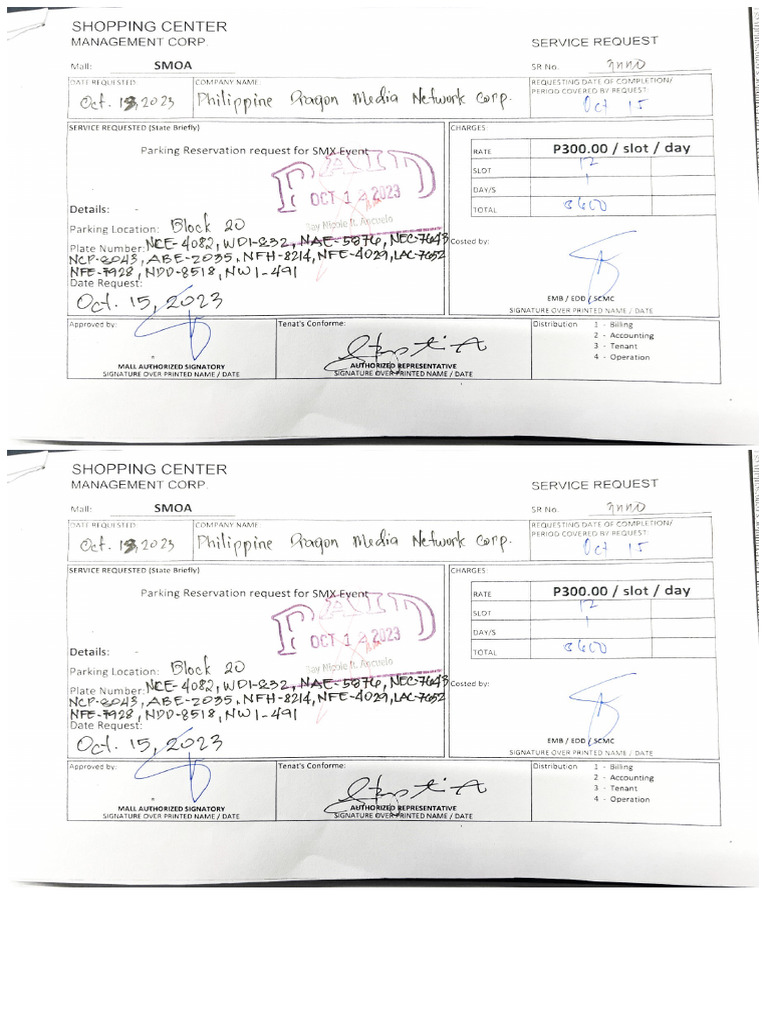 SHOPPING CENTER
MANAGEMENT CORP.
SERVICE REQUEST
Mall: SMOA
SR No.
DATE REQUESTED:
Oct. 13, 2023
COMPANY NAME:
Philippine Dragon Media Network Corp.
REQUESTING DATE OF COMPLETION/
PERIOD COVERED BY REQUEST:
Oct 15
SERVICE REQUESTED (State Briefly)
Parking Reservation request for SMX Event
PAID
OCT 1 2023
Details: -
Parking Location: Block 20
Plate Number: NCE-4082, WDI-232, NAE-5876, NEC-7643
NCP-2043, ABE-2035, NFH-8214, NFE-4029, LAC-7652
NFE-7928, NDD-8518, NWI-491
Date Request:
Oct. 15, 2023
CHARGES:
RATE P300.00 / slot / day
SLOT 12
DAY/S 1
TOTAL 3600
Costed by:
EMB / EDD / SCMC
SIGNATURE OVER PRINTED NAME / DATE
Approved by:
MALL AUTHORIZED SIGNATORY
SIGNATURE OVER PRINTED NAME / DATE
Tenat's Conforme:
AUTHORIZED REPRESENTATIVE
SIGNATURE OVER PRINTED NAME / DATE
Distribution 1 - Billing
2 - Accounting
3 - Tenant
4 - Operation
SHOPPING CENTER
MANAGEMENT CORP.
SERVICE REQUEST
Mall: SMOA
SR No.
DATE REQUESTED:
Oct. 13, 2023
COMPANY NAME:
Philippine Dragon Media Network Corp.
REQUESTING DATE OF COMPLETION/
PERIOD COVERED BY REQUEST:
Oct 15
SERVICE REQUESTED (State Briefly)
Parking Reservation request for SMX Event
PAID
OCT 1 2023
Details: -
Parking Location: Block 20
Plate Number: NCE-4082, WDI-232, NAE-5876, NEC-7643
NCP-2043, ABE-2035, NFH-8214, NFE-4029, LAC-7652
NFE-7928, NDD-8518, NWI-491
Date Request:
Oct. 15, 2023
CHARGES:
RATE P300.00 / slot / day
SLOT 12
DAY/S 1
TOTAL 3600
Costed by:
EMB / EDD / SCMC
SIGNATURE OVER PRINTED NAME / DATE
Approved by:
MALL AUTHORIZED SIGNATORY
SIGNATURE OVER PRINTED NAME / DATE
Tenat's Conforme:
AUTHORIZED REPRESENTATIVE
SIGNATURE OVER PRINTED NAME / DATE
Distribution 1 - Billing
2 - Accounting
3 - Tenant
4 - Operation